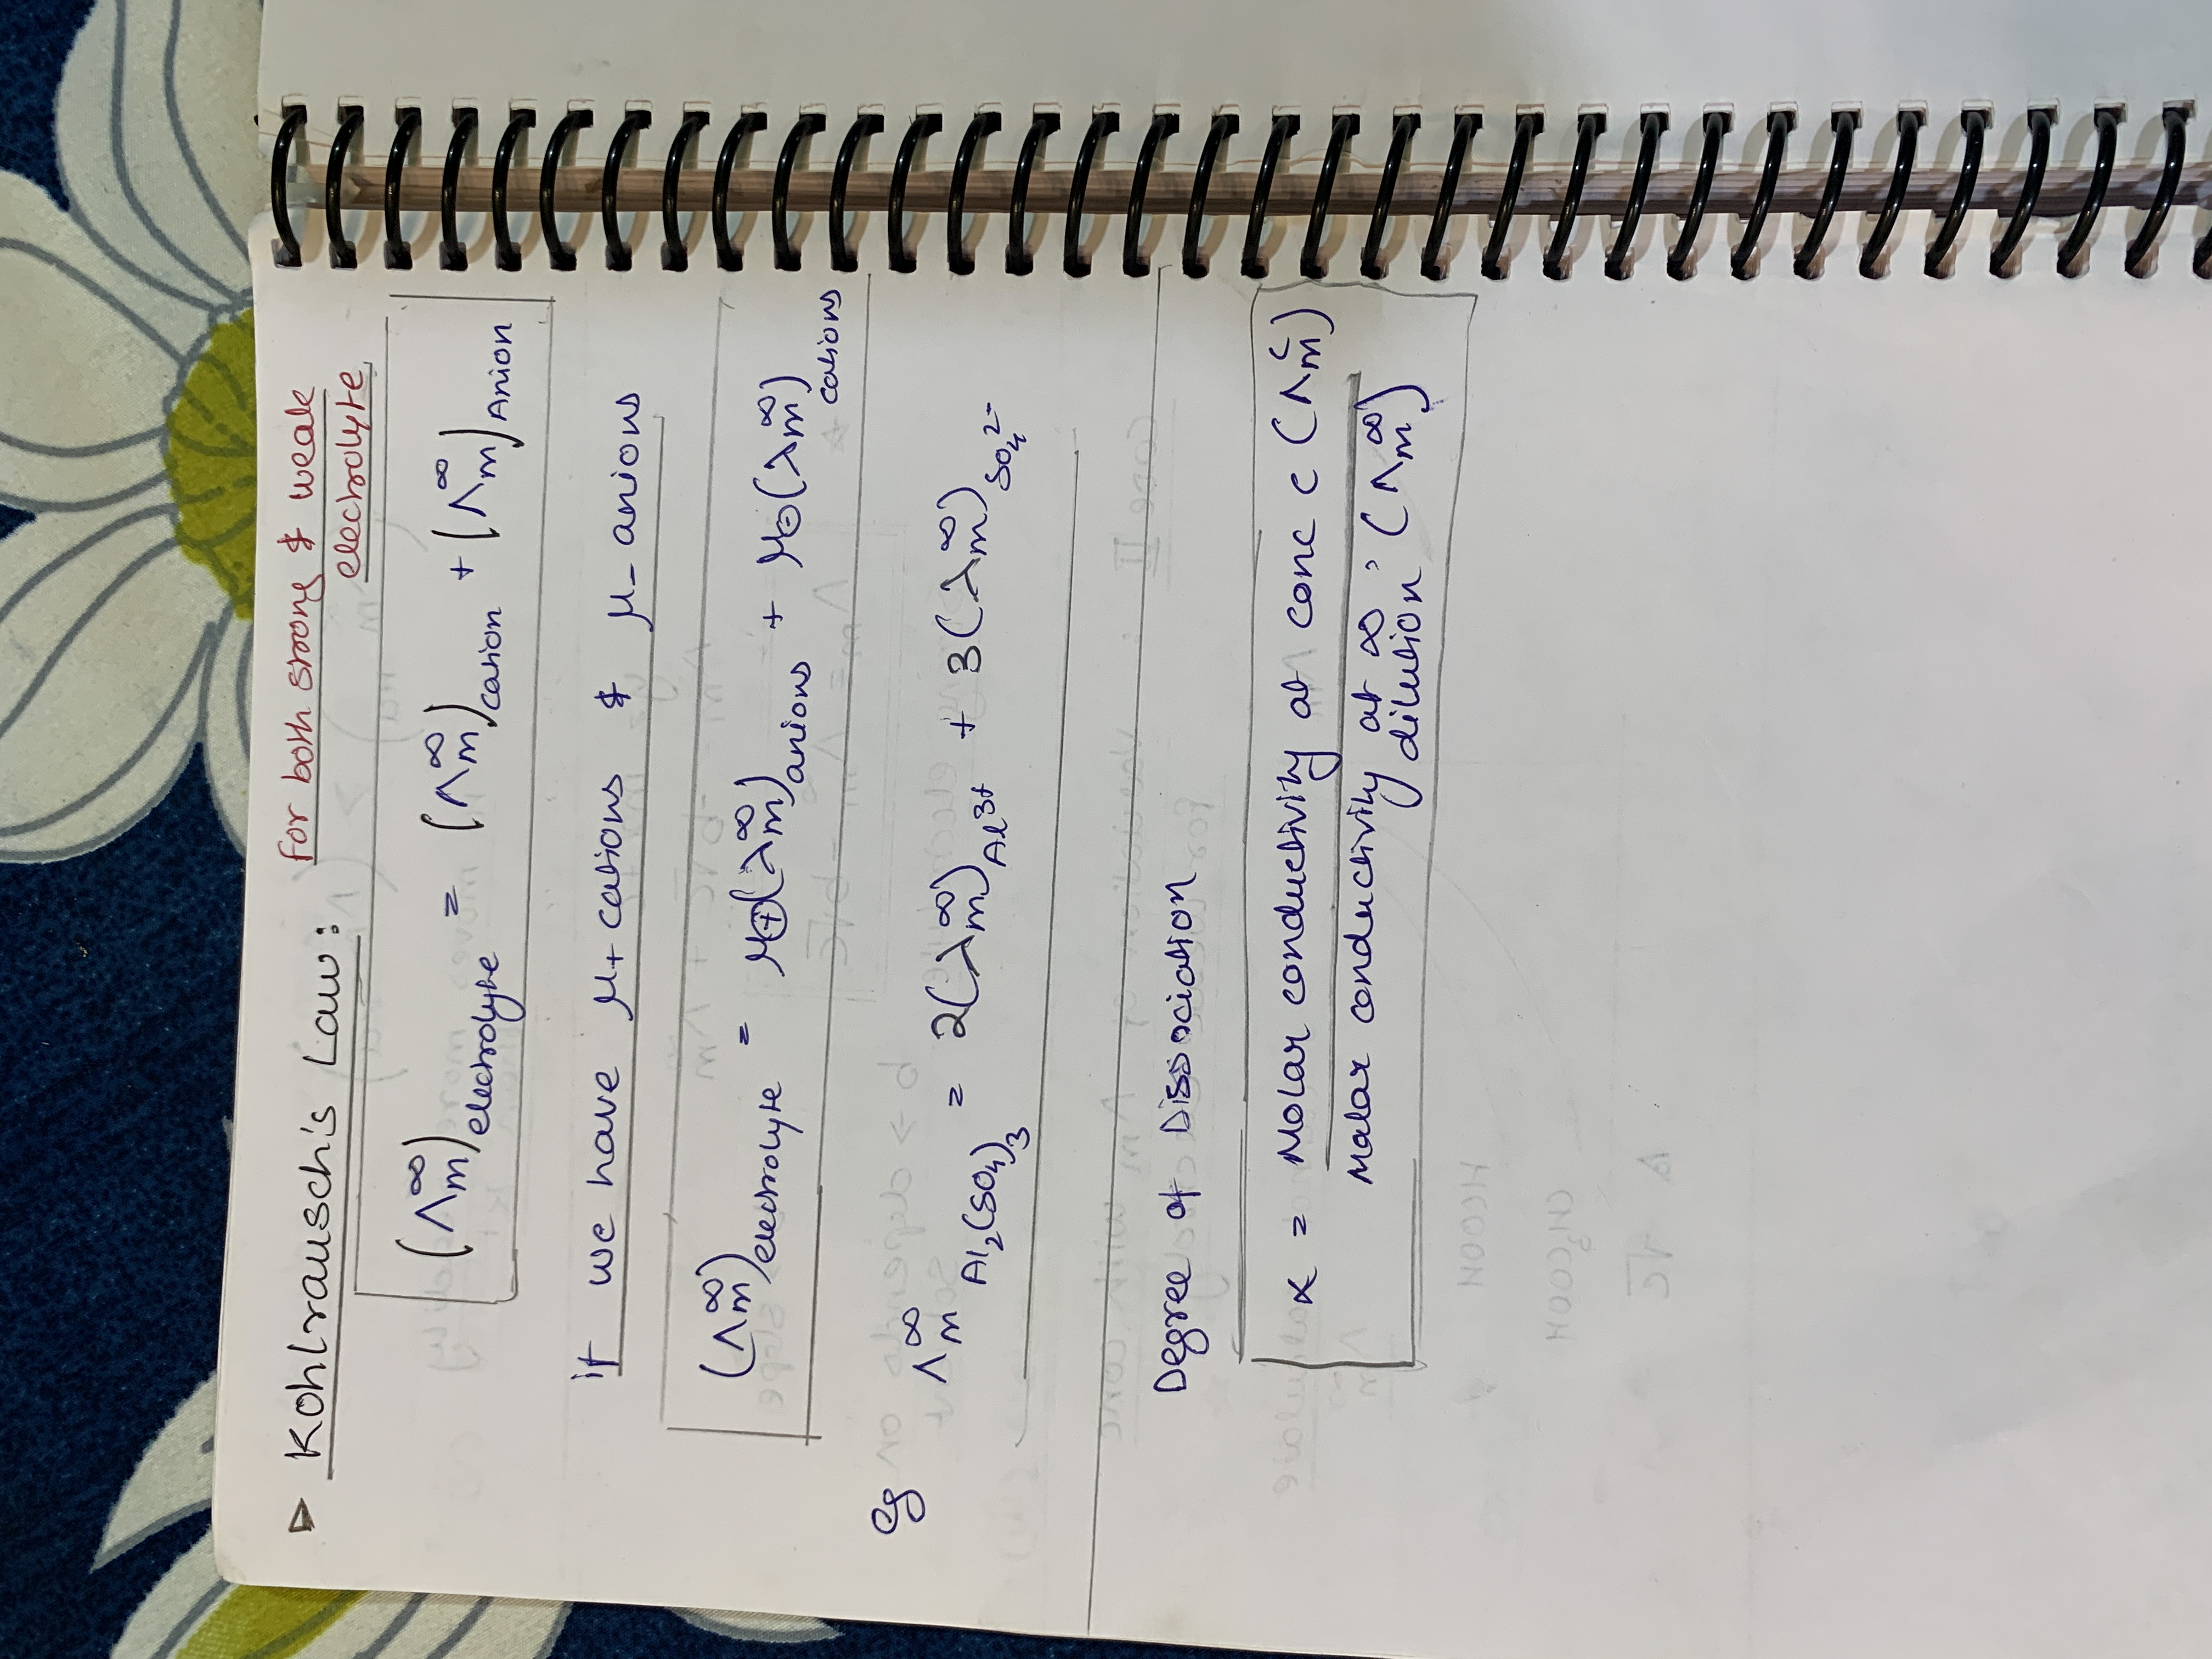 ▷ Kohlrausch's Law: for both strong & weak
electrolyte
(Λm^∞)electrolyte = (Λm^∞)cation + (Λm^∞)Anion
if we have μ+ cations & μ- anions
(Λm^∞)electrolyte = μ⊕(λm^∞)anions + μ⊖(λm^∞)cations
eg Λm^∞ Al₂(SO₄)₃ = 2(λm^∞)Al³⁺ + 3(λm^∞)SO₄²⁻
Degree of Dissociation
α = Molar conductivity at conc c (Λm^c)
Molar conductivity at ∞ dilution, (Λm^∞)